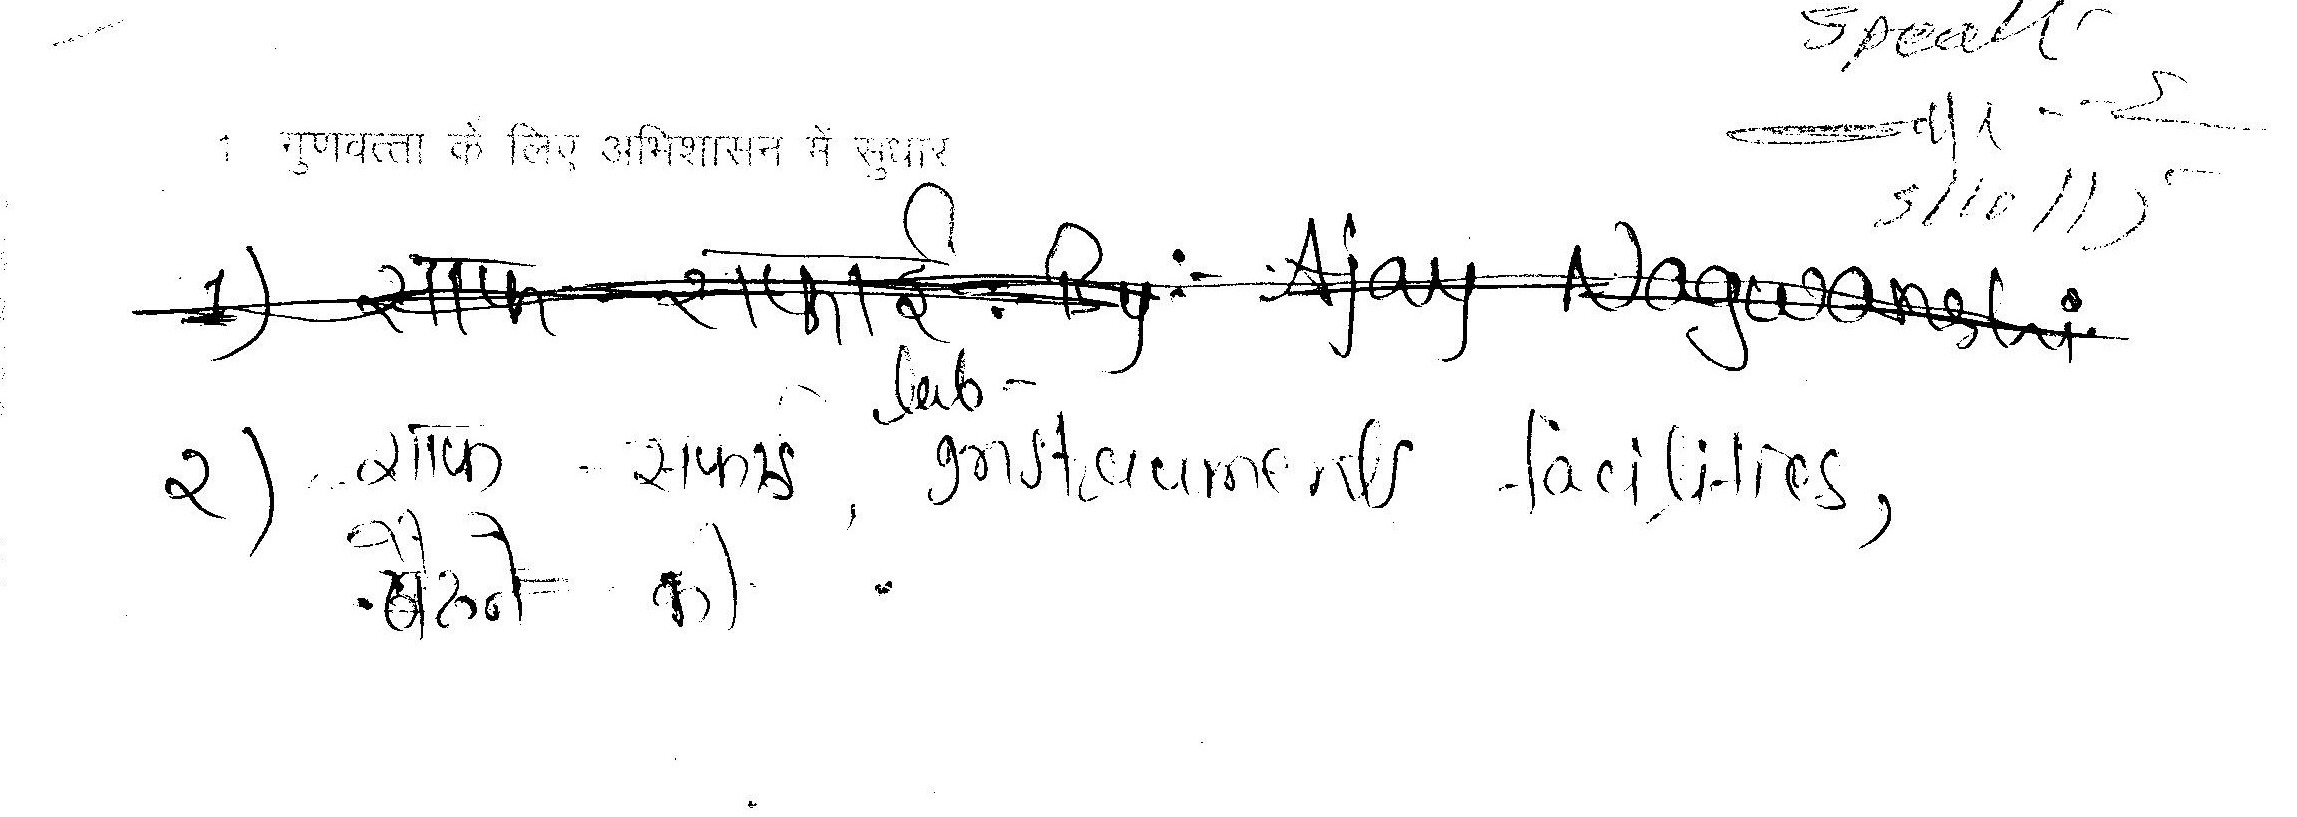 Speak
5/10/15
1 गुणवत्ता के लिए अभिशासन में सुधार
1) साफ-सफाई : By :- Ajay Nagwanshi
lab-
२) साफ-सफाई, Instruments facilities,
बैठने को.